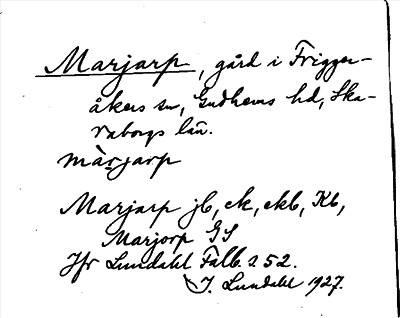 Marjarp, gård i Frigger-
åkers sn, Gudhems hd, Ska-
raborgs län.
màrjarp
Marjarp jb, ek, ekb, Kb,
Marjorp GS
Jfr Lundahl Falb. s 52.
I. Lundahl 1927.